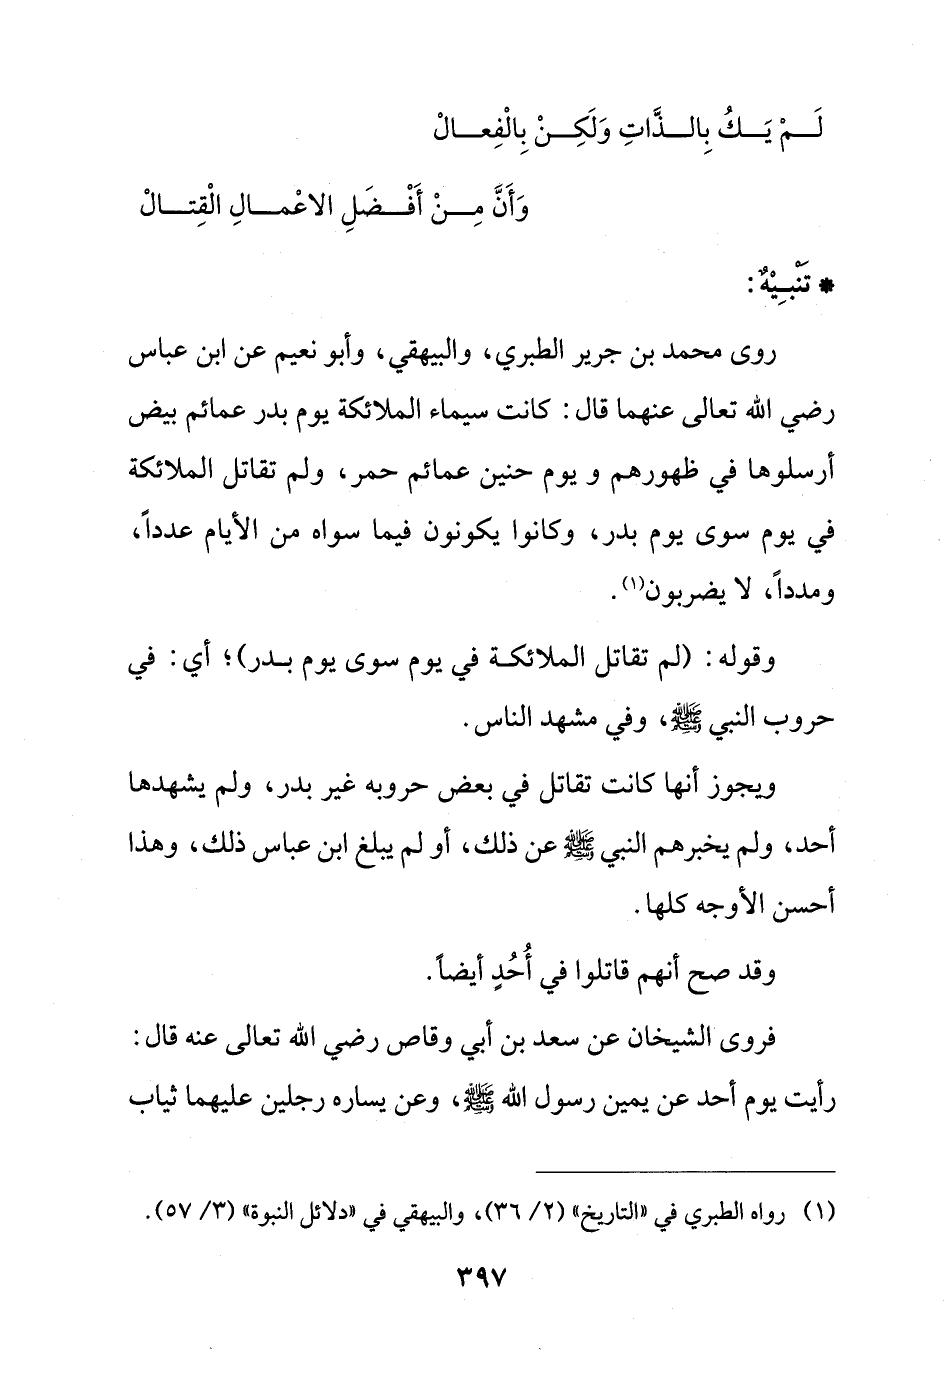 لَمْ يَكُ بِالذَّاتِ وَلَكِنْ بِالْفِعالْ
وَأَنَّ مِنْ أَفْضَلِ الاعْمالِ الْقِتالْ
* تَنْبِيْهٌ:
روى محمد بن جرير الطبري، والبيهقي، وأبو نعيم عن ابن عباس
رضي الله تعالى عنهما قال: كانت سيماء الملائكة يوم بدر عمائم بيض
أرسلوها في ظهورهم و يوم حنين عمائم حمر، ولم تقاتل الملائكة
في يوم سوى يوم بدر، وكانوا يكونون فيما سواه من الأيام عدداً،
ومدداً، لا يضربون(١).
وقوله: (لم تقاتل الملائكة في يوم سوى يوم بدر)؛ أي: في
حروب النبي ﷺ، وفي مشهد الناس.
ويجوز أنها كانت تقاتل في بعض حروبه غير بدر، ولم يشهدها
أحد، ولم يخبرهم النبي ﷺ عن ذلك، أو لم يبلغ ابن عباس ذلك، وهذا
أحسن الأوجه كلها.
وقد صح أنهم قاتلوا في أُحُدٍ أيضاً.
فروى الشيخان عن سعد بن أبي وقاص رضي الله تعالى عنه قال:
رأيت يوم أحد عن يمين رسول الله ﷺ، وعن يساره رجلين عليهما ثياب
(١) رواه الطبري في «التاريخ» (٢/ ٣٦)، والبيهقي في «دلائل النبوة» (٣/ ٥٧).
٣٩٧